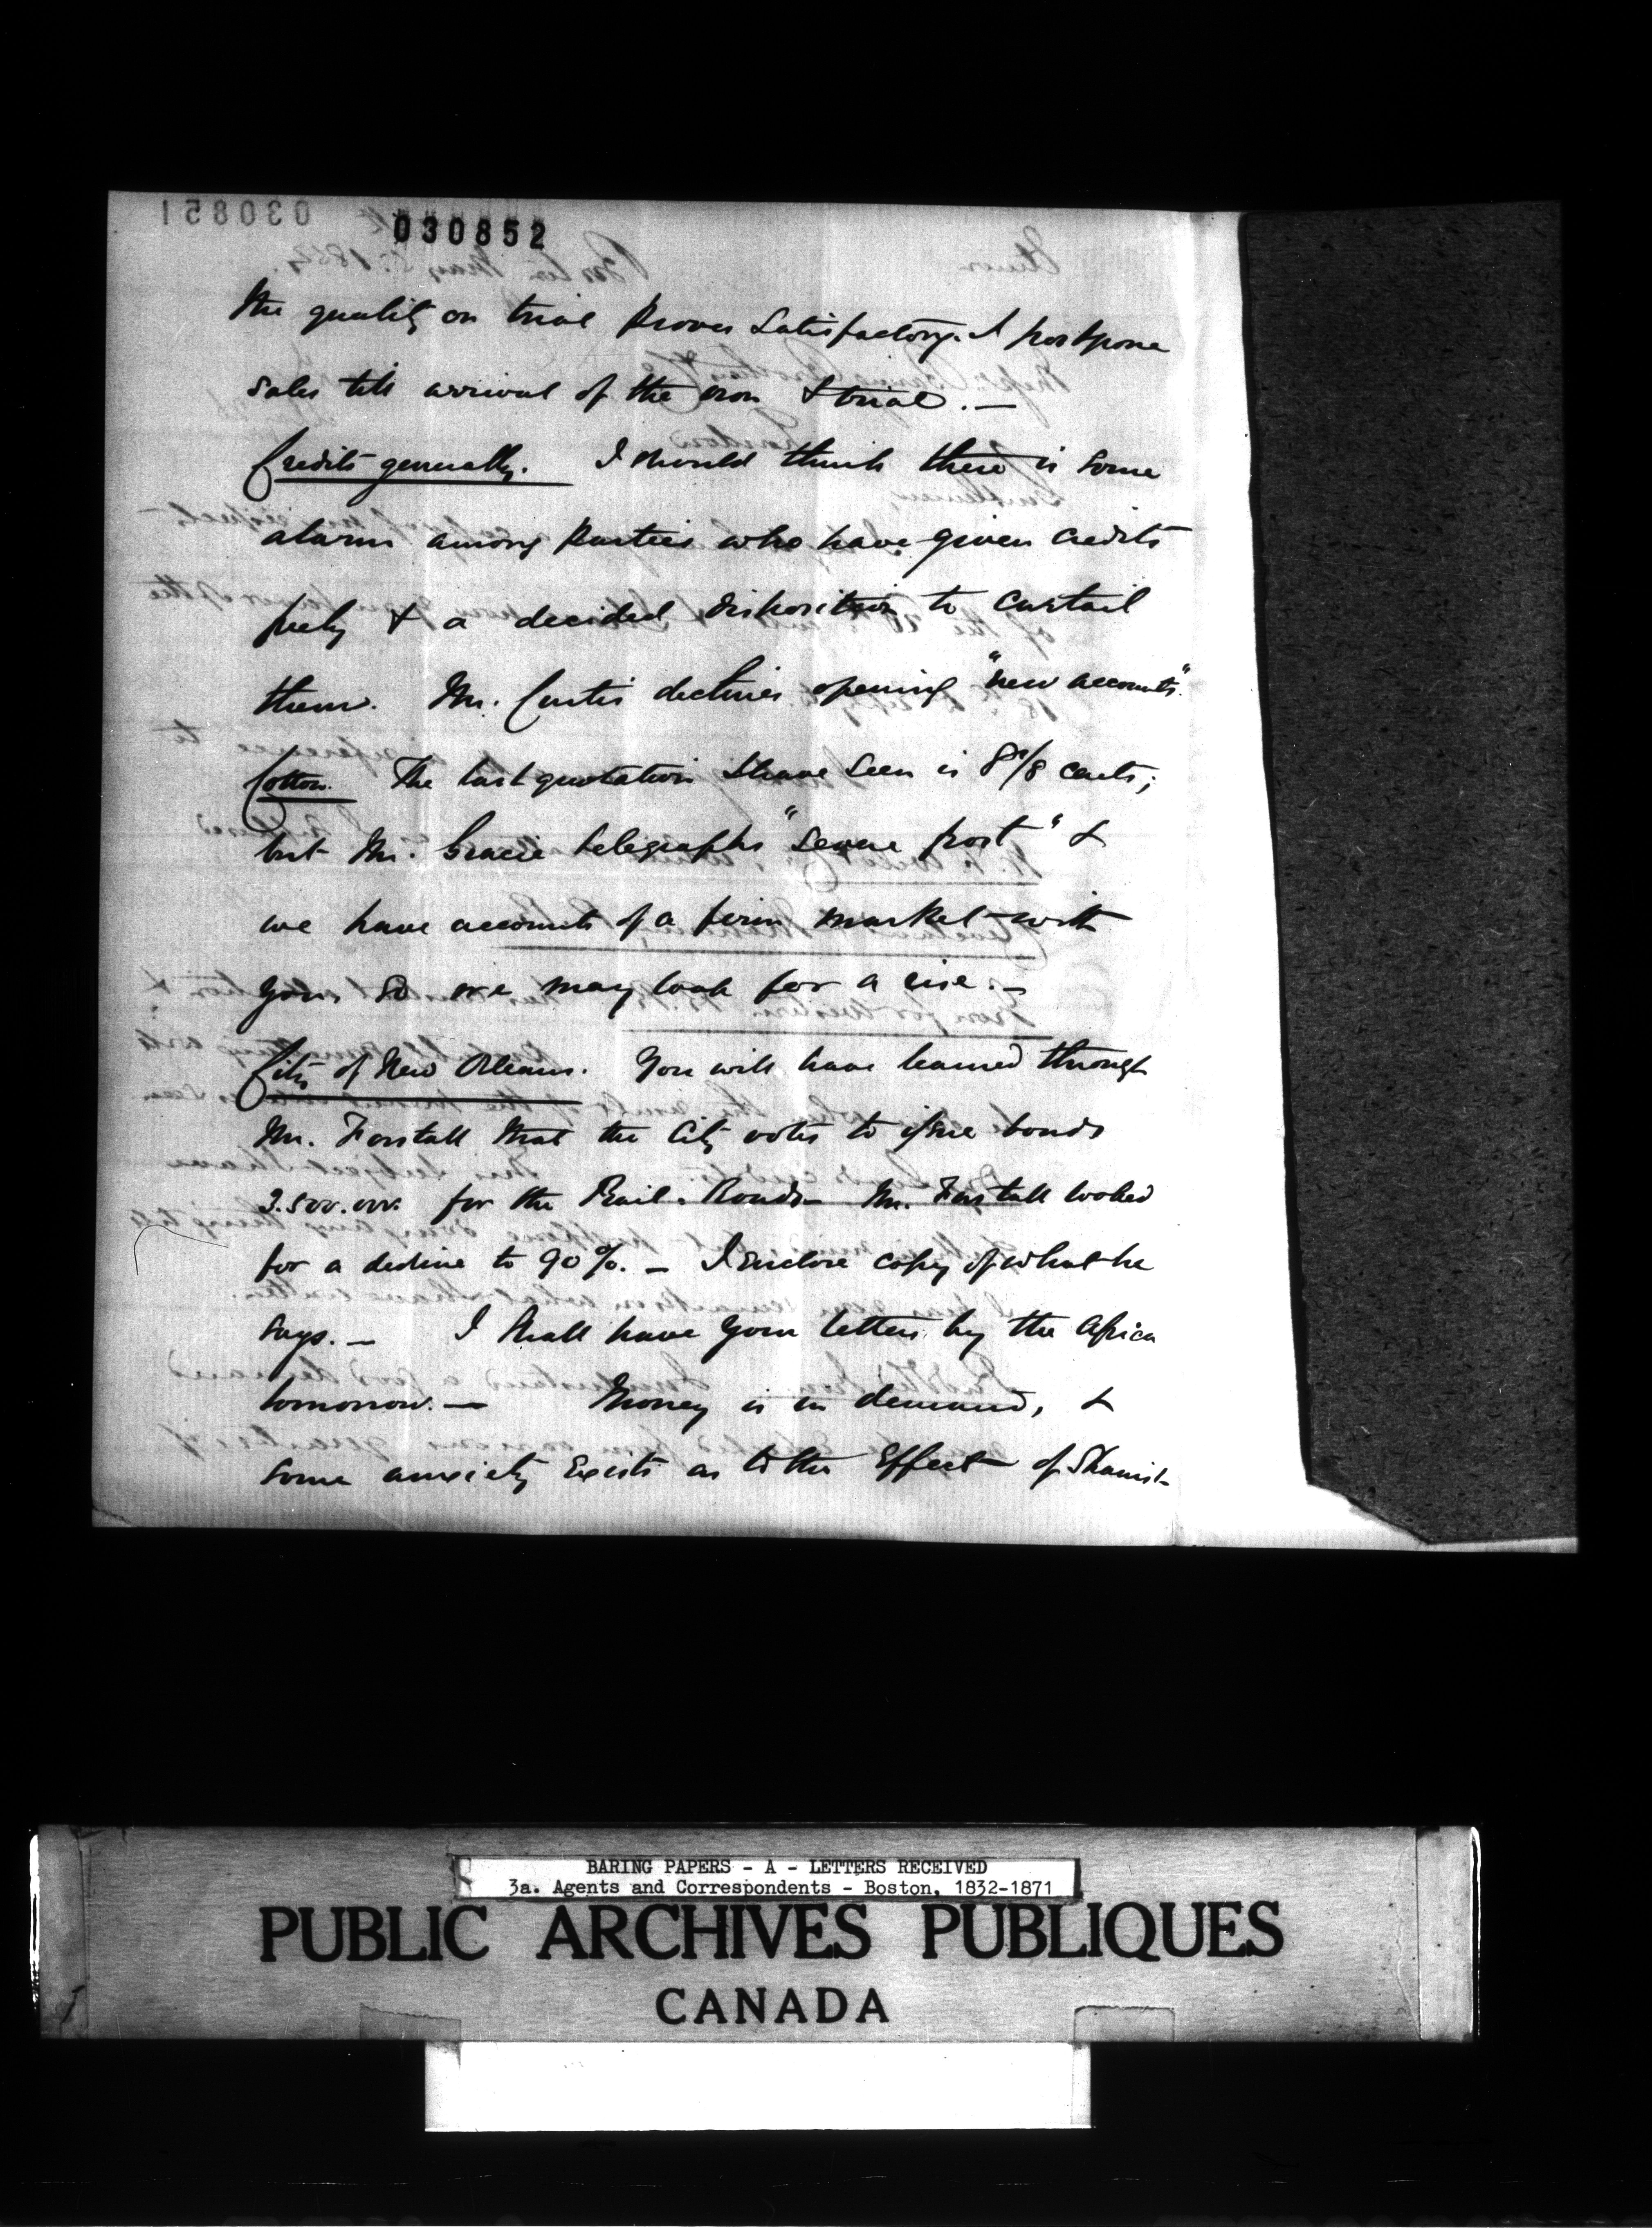 030852
the quality on trial proves satisfactory. I postpone
sales till arrival of the iron & trial. —
Credits generally. I should think there is some
alarm among parties who have given credits
freely & a decided disposition to curtail
them. Mr. Curtis declines opening "new accounts".
Cotton. The last quotation I have seen is 8 /8 cents;
but Mr. Gracie telegraphs "severe frost" &
we have accounts of a firm market with
you, so we may look for a rise. —
City of New Orleans. You will have learned through
Mr. Forstall that the City votes to issue bonds
3.500.000. for the Rail. Roads — Mr. Forstall looked
for a decline to 90%. — I enclose copy of what he
says. — I shall have your letters by the Africa
tomorrow. — Money is in demand, &
some anxiety exists as to the effect of Spanish
BARING PAPERS - A - LETTERS RECEIVED
3a. Agents and Correspondents - Boston, 1832-1871
PUBLIC ARCHIVES PUBLIQUES
CANADA